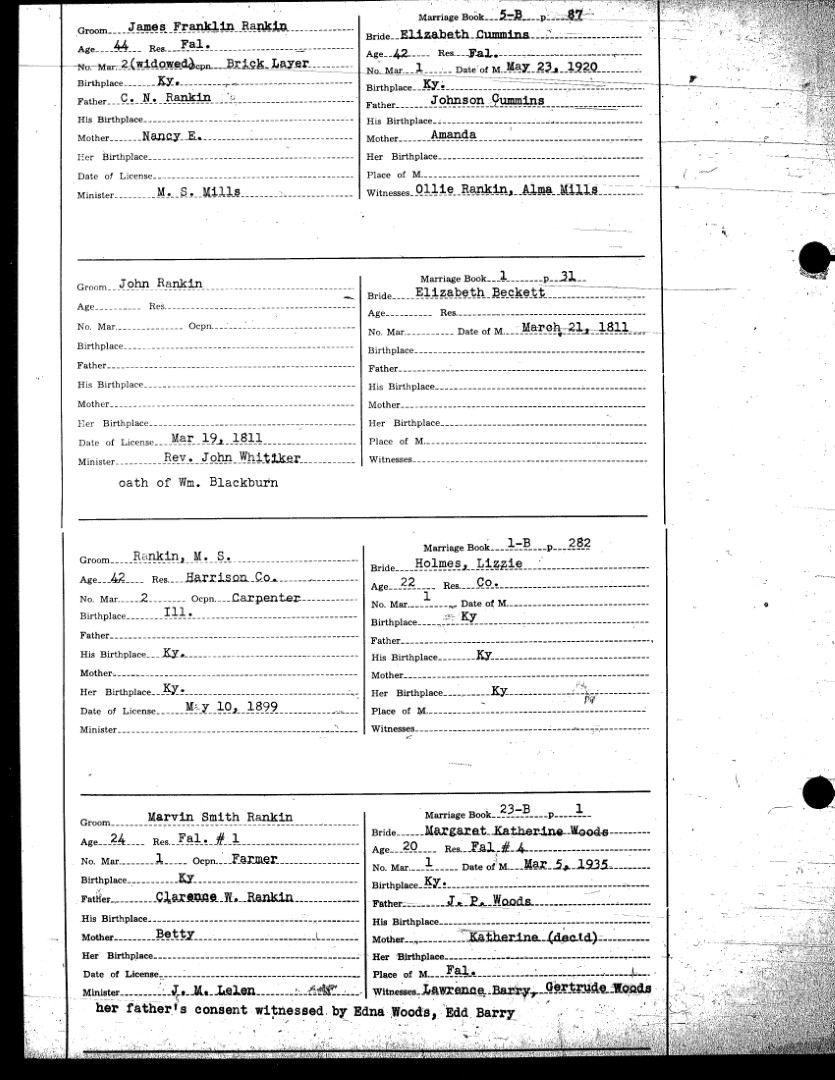 Marriage Book 5-B p. 87
Groom James Franklin Rankin
Bride Elizabeth Cummins
Age 44 Res. Fal.
Age 42 Res Fal.
No. Mar. 2(widowed) Ocpn. Brick Layer
No. Mar 1 Date of M. May 23, 1920
Birthplace Ky.
Birthplace Ky.
Father C. N. Rankin
Father Johnson Cummins
His Birthplace
His Birthplace
Mother Nancy E.
Mother Amanda
Her Birthplace
Her Birthplace
Date of License
Place of M.
Minister M. S. Mills
Witnesses Ollie Rankin, Alma Mills
Marriage Book 1 p. 31
Groom John Rankin
Bride Elizabeth Beckett
Age Res.
Age Res.
No. Mar. Ocpn.
No. Mar Date of M. March 21, 1811
Birthplace
Birthplace
Father
Father
His Birthplace
His Birthplace
Mother
Mother
Her Birthplace
Her Birthplace
Date of License Mar 19, 1811
Place of M.
Minister Rev. John Whitiker
Witnesses
oath of Wm. Blackburn
Marriage Book 1-B p. 282
Groom Rankin, M. S.
Bride Holmes, Lizzie
Age 42 Res. Harrison Co.
Age 22 Res. Co.
No. Mar. 2 Ocpn. Carpenter
No. Mar 1 Date of M.
Birthplace Ill.
Birthplace Ky
Father
Father
His Birthplace Ky.
His Birthplace Ky
Mother
Mother
Her Birthplace Ky.
Her Birthplace Ky
Date of License May 10, 1899
Place of M.
Minister
Witnesses
Marriage Book 23-B p. 1
Groom Marvin Smith Rankin
Bride Margaret Katherine Woods
Age 24 Res. Fal. # 1
Age 20 Res. Fal # 4
No. Mar. 1 Ocpn. Farmer
No. Mar 1 Date of M Mar 5, 1935
Birthplace Ky
Birthplace Ky.
Father Clarence W. Rankin
Father J. P. Woods
His Birthplace
His Birthplace
Mother Betty
Mother Katherine (dectd)
Her Birthplace
Her Birthplace
Date of License
Place of M. Fal.
Minister J. M. Lelen
Witnesses Lawrence Barry, Gertrude Woods
her father's consent witnessed by Edna Woods, Edd Barry